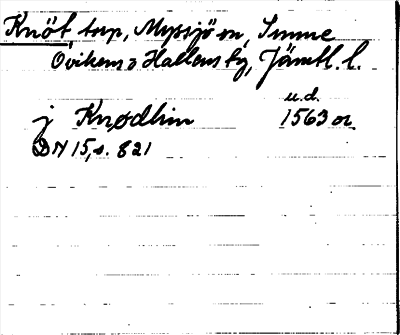 Knöt torp, Myssjö sn, Sunne
Ovikens o Hallens tg, Jämtl. l.
u.d.
j Knødhin 1563 or
DN 15, s. 821